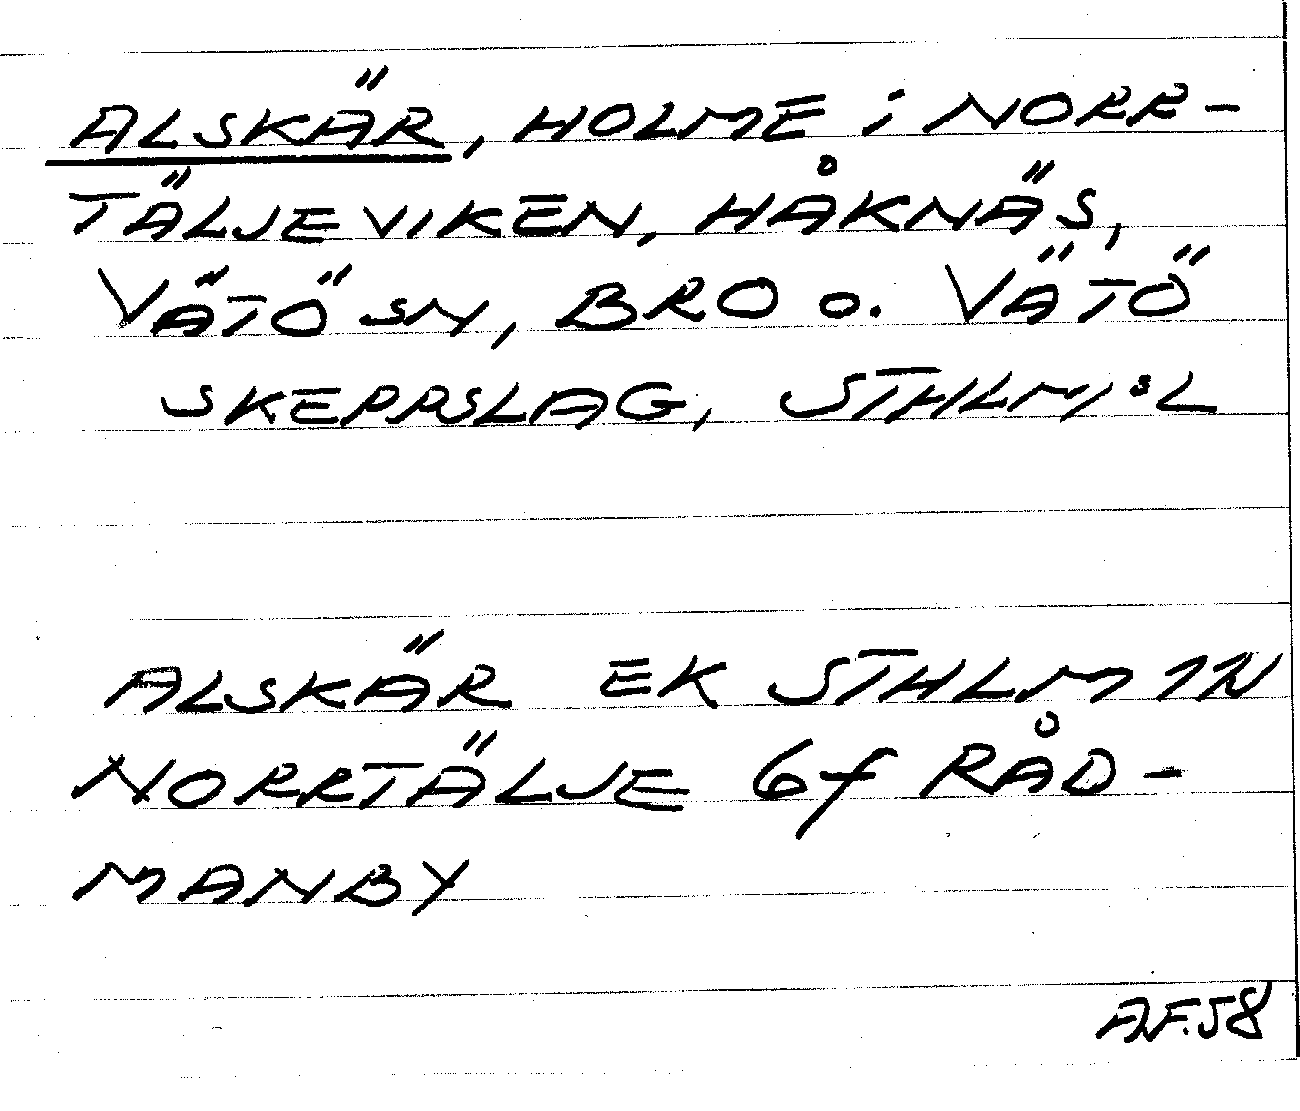 ALSKÄR, HOLME i NORR-
TÄLJEVIKEN, HÅKNÄS,
VÄTÖ SN, BRO o. VÄTÖ
SKEPPSLAG, STHLM:S L
ALSKÄR EK STHLM 1N
NORRTÄLJE 6f RÅD-
MANBY
A.F. 58